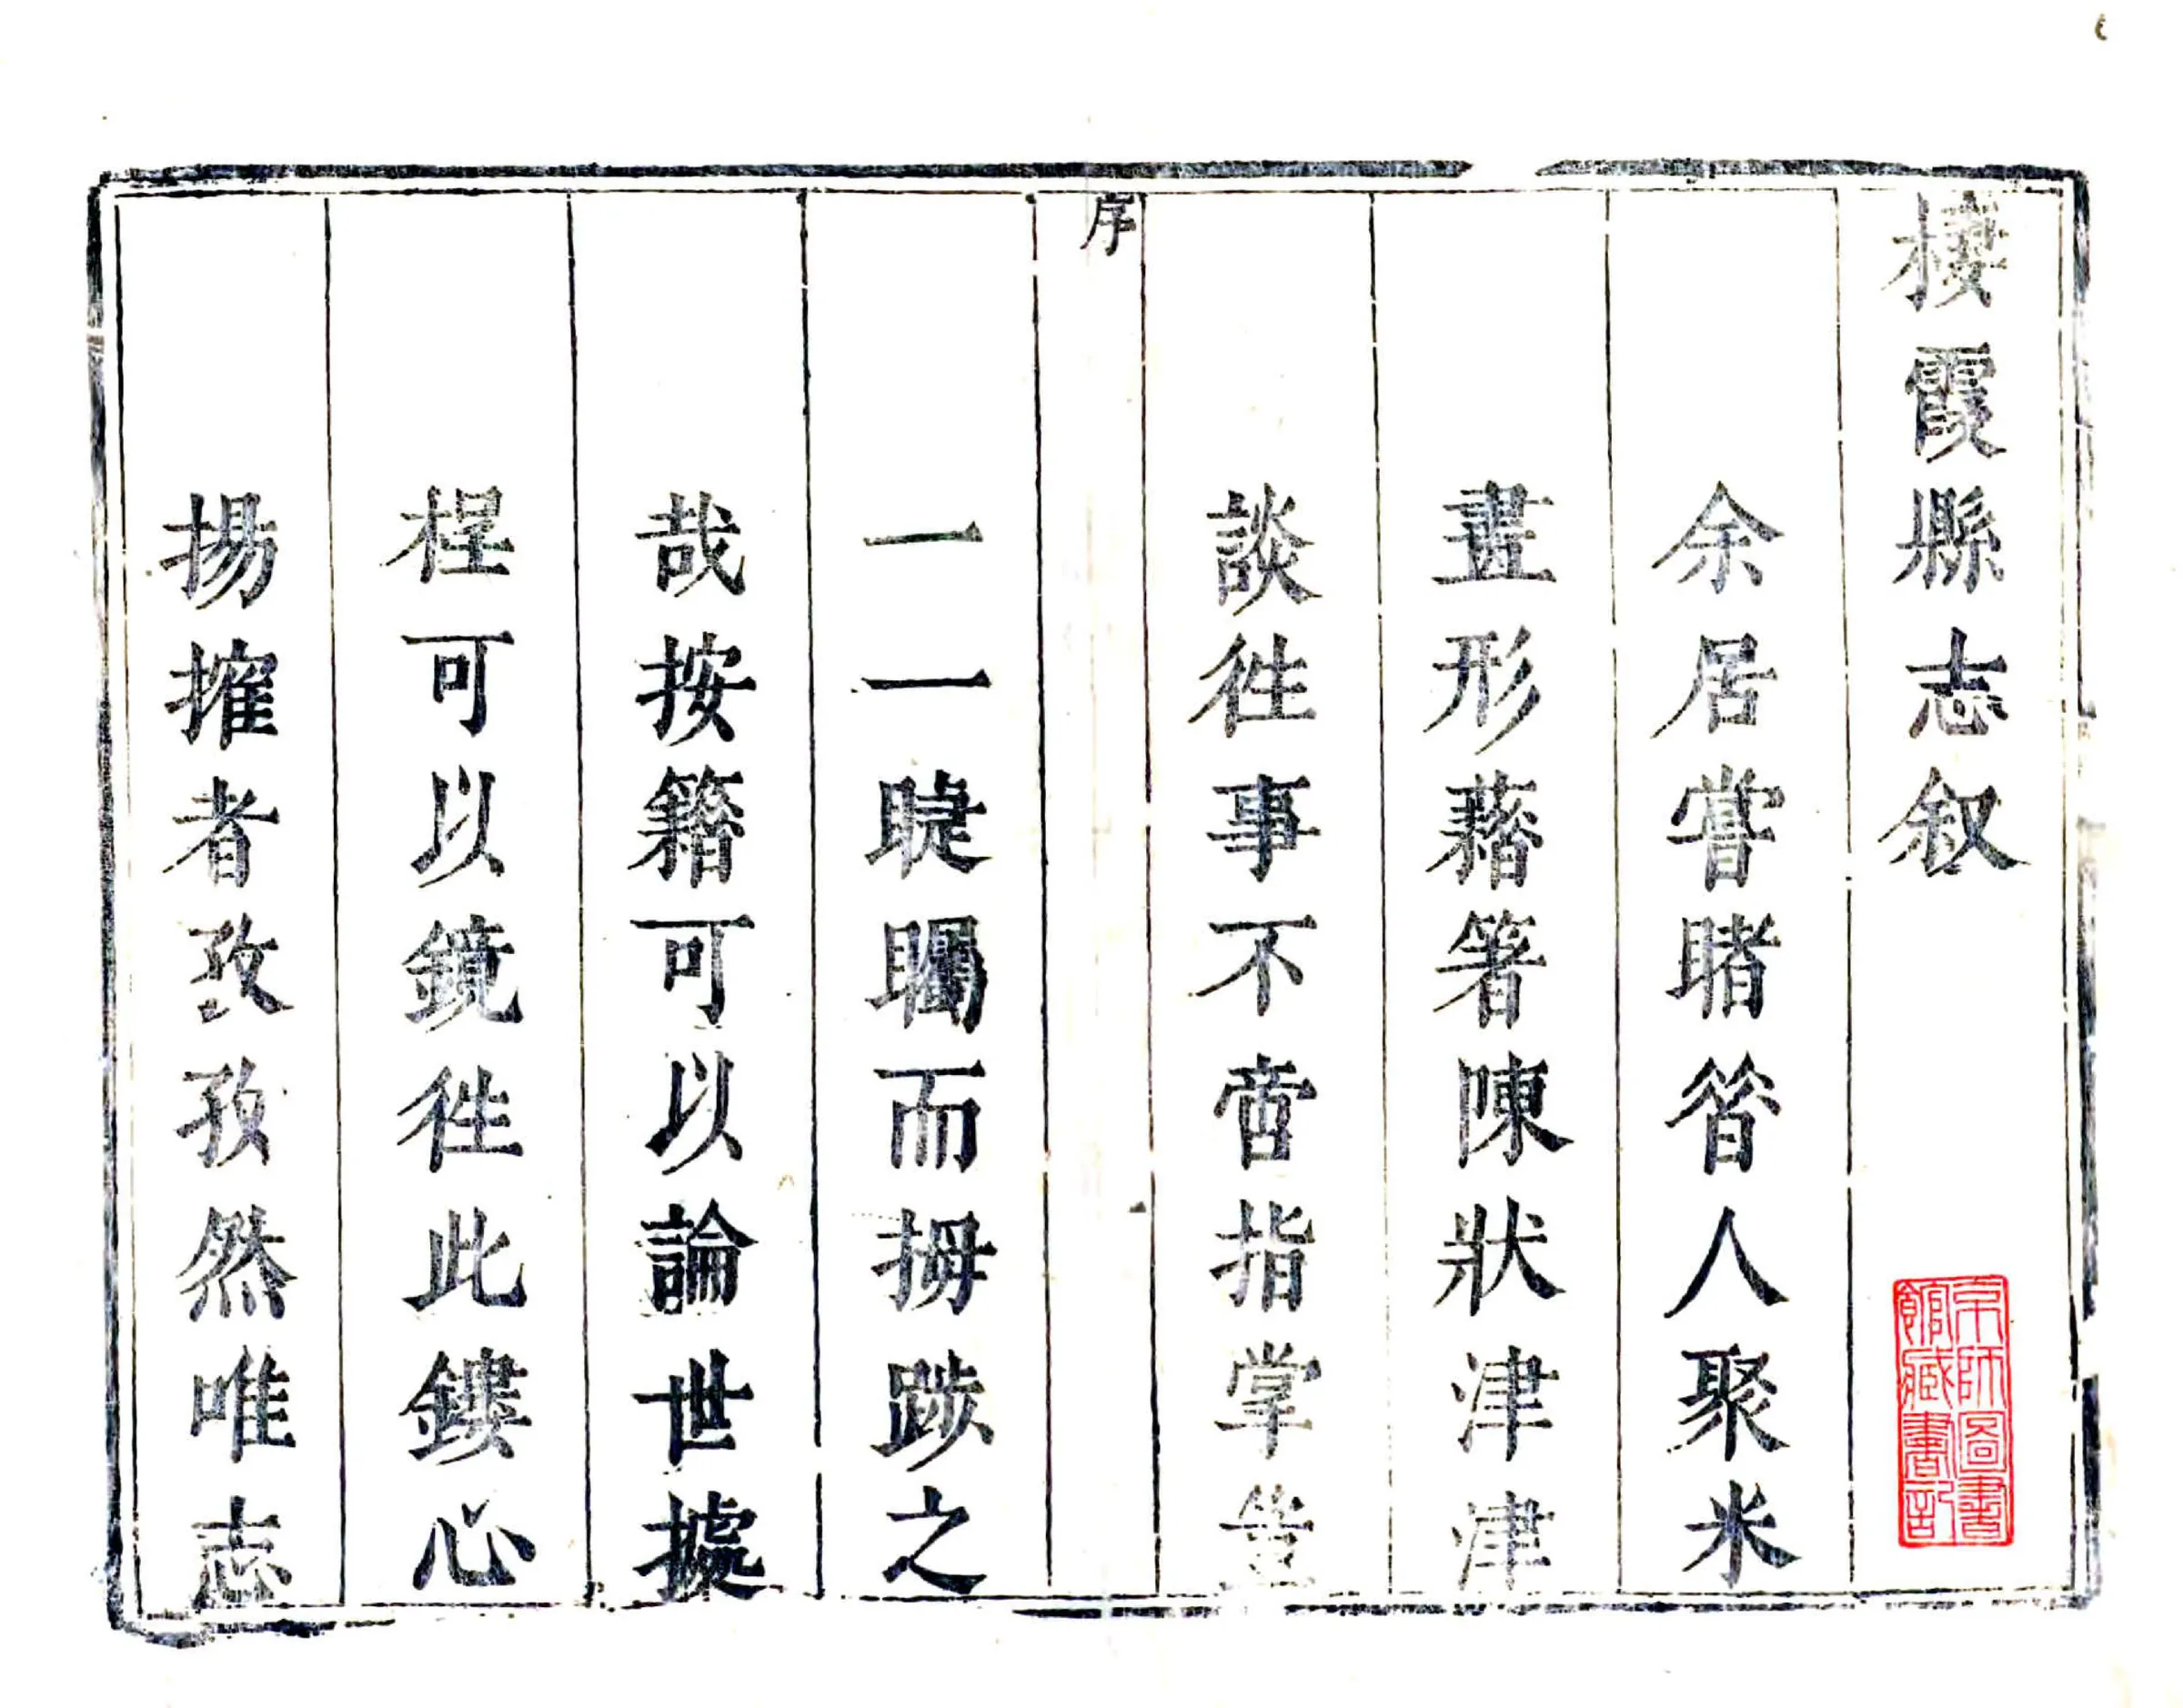 棲霞縣志叙
余居嘗睹昝人聚米
畫形藉箸陳狀津津
談徃事不啻指掌豈
序
一一睫矚而拇踄之
哉按籍可以論世據
桯可以鏡徃此鏤心
揚搉者孜孜然唯志
京師圖書
館藏書記